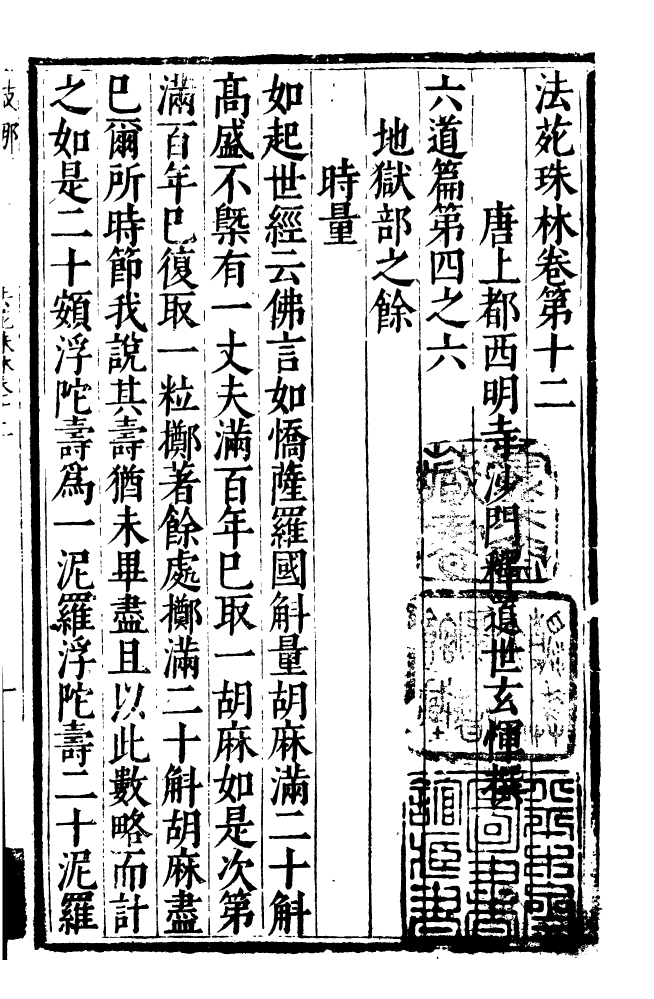 法苑珠林卷第十二
唐上都西明寺沙門釋道世玄惲撰
六道篇第四之六
地獄部之餘
時量
如起世經云佛言如憍薩羅國斛量胡麻滿二十斛
髙盛不槩有一丈夫滿百年已取一胡麻如是次第
滿百年已復取一粒擲著餘處擲滿二十斛胡麻盡
已爾所時節我說其壽猶未畢盡且以此數略而計
之如是二十頞浮陀壽爲一泥羅浮陀壽二十泥羅